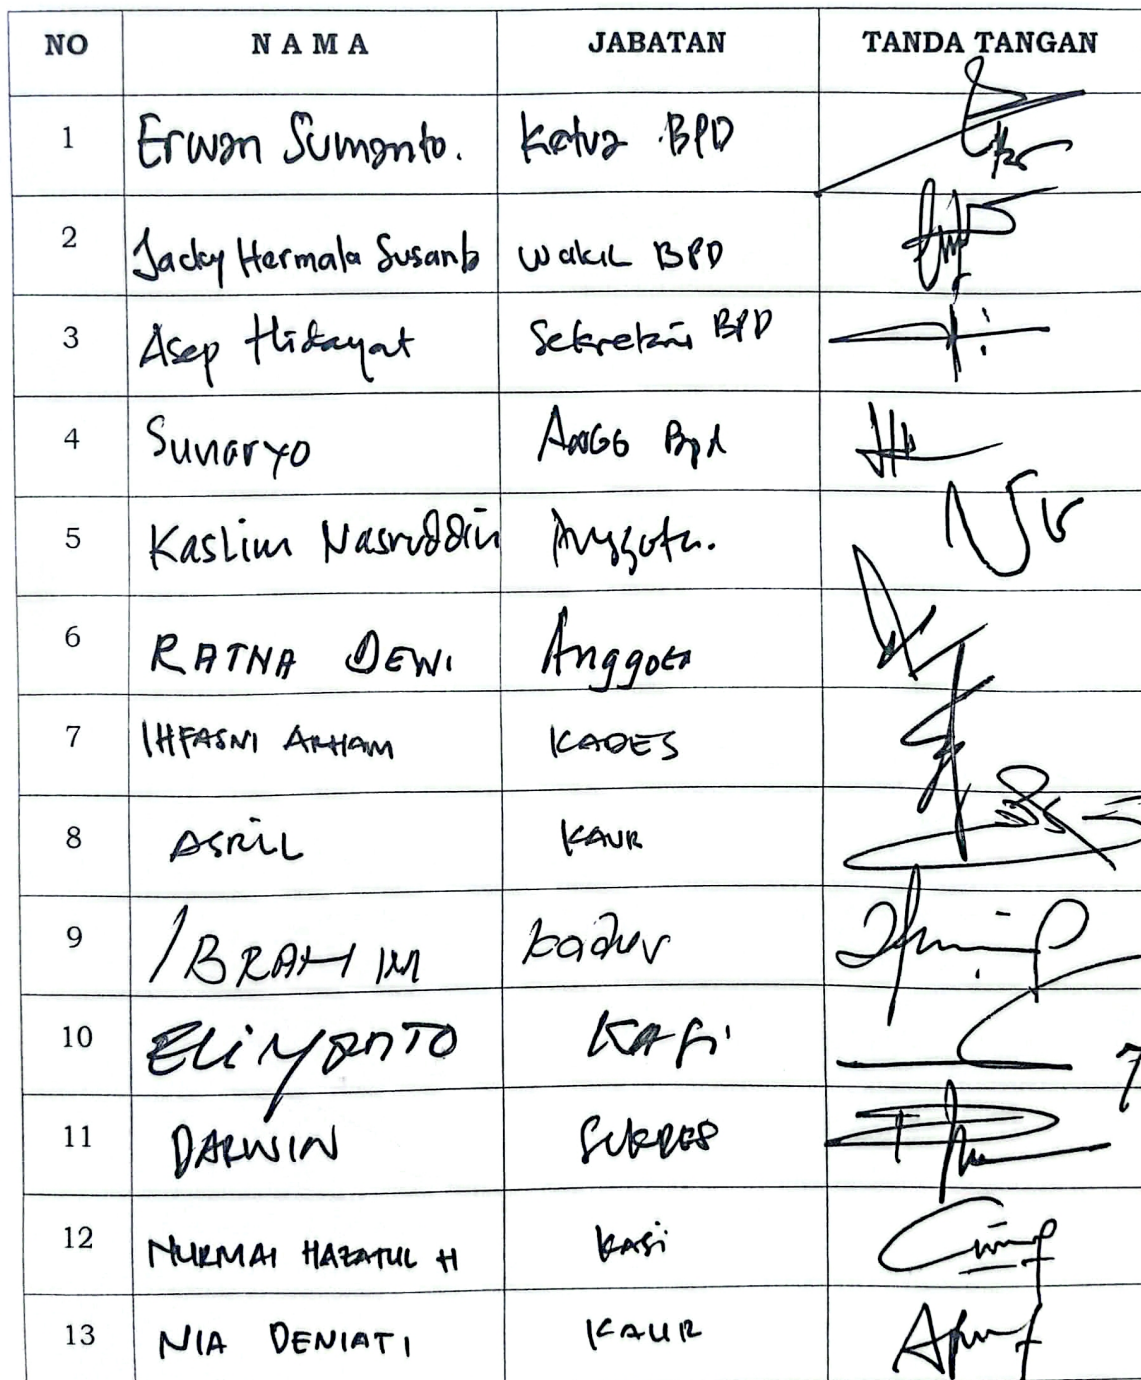 NO N A M A JABATAN TANDA TANGAN
1 Erwan Sumanto. Ketua BPD
2 Jacky Hermala Susanto Wakil BPD
3 Asep Hidayat Sekretaris BPD
4 Sunaryo Bpd
5 Kaslim Nasruddin Anggota.
6 RATNA DEWI Anggota
7 IHFASNI ARHAM KADES
8 ASRIL KAUR
9 IBRAHIM kadus
10 ELiYANTO KASi
11 DARWIN SEKDES
12 NURMAI HAZATUL H kasi
13 NIA DENIATI KAUR